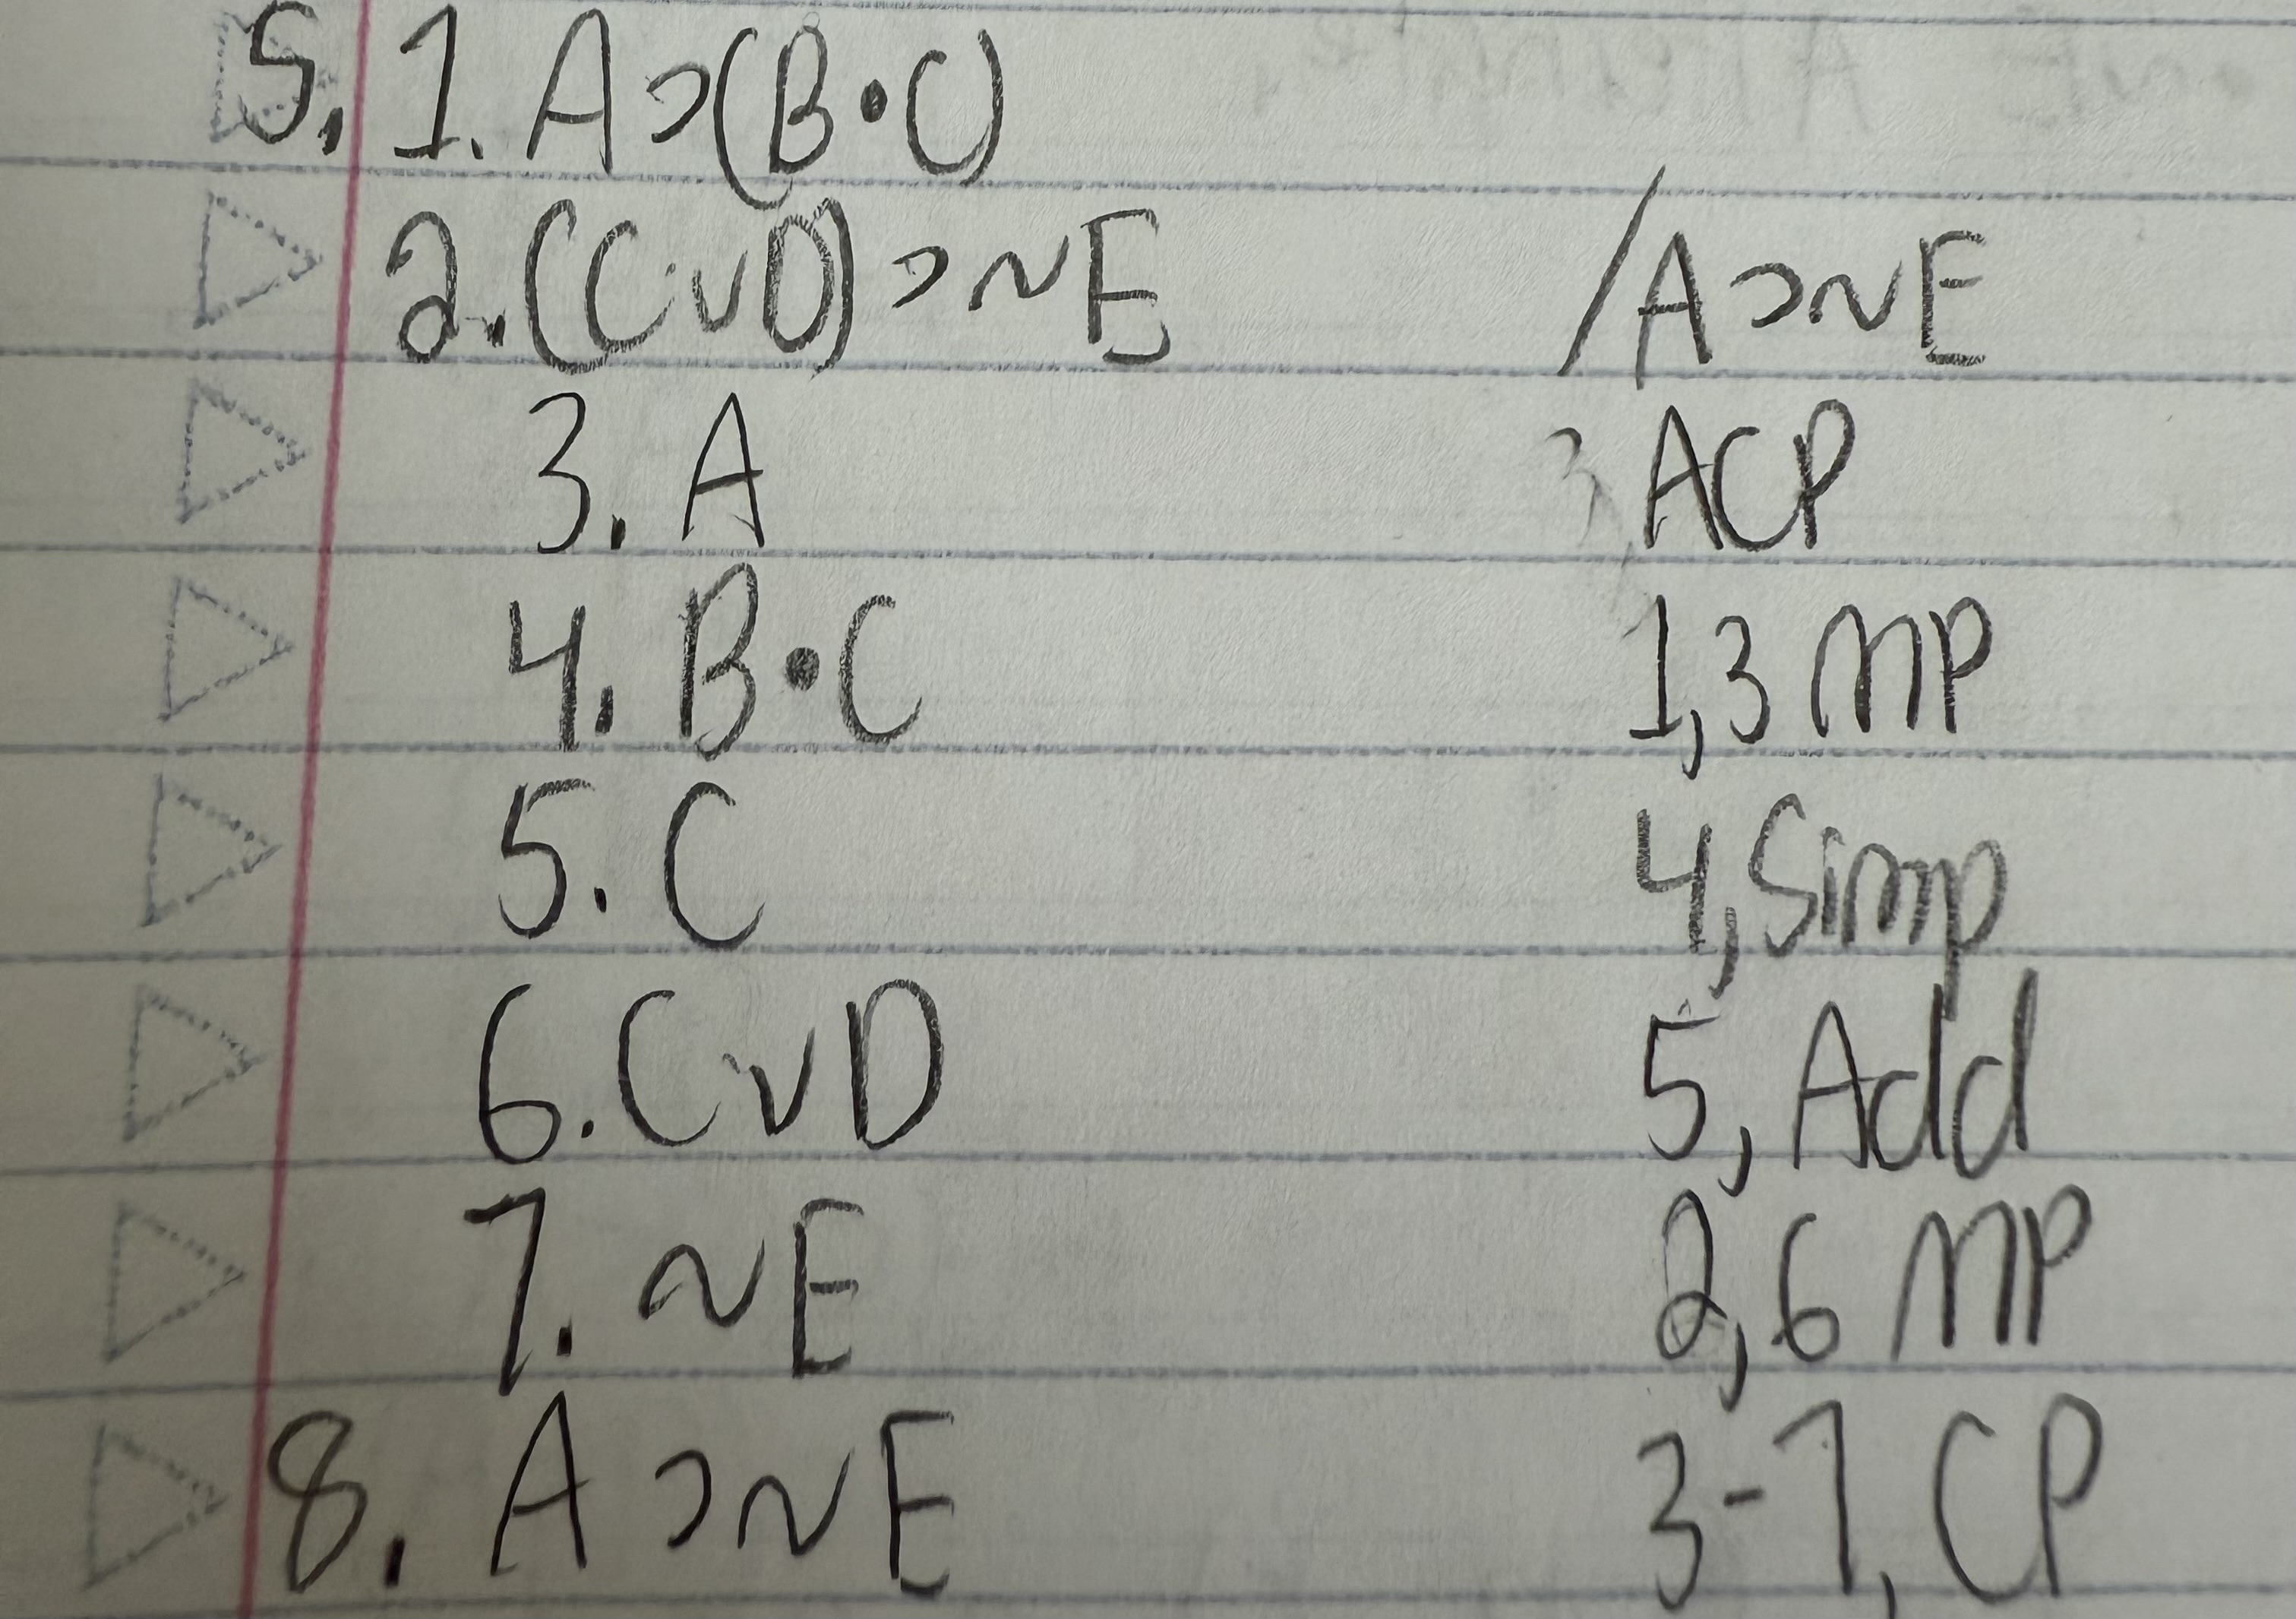 5. 1. A ⊃ (B • C)
2. (C v D) ⊃ ~E / A ⊃ ~E
3. A ACP
4. B • C 1,3 MP
5. C 4, Simp
6. C v D 5, Add
7. ~E 2,6 MP
8. A ⊃ ~E 3-7, CP